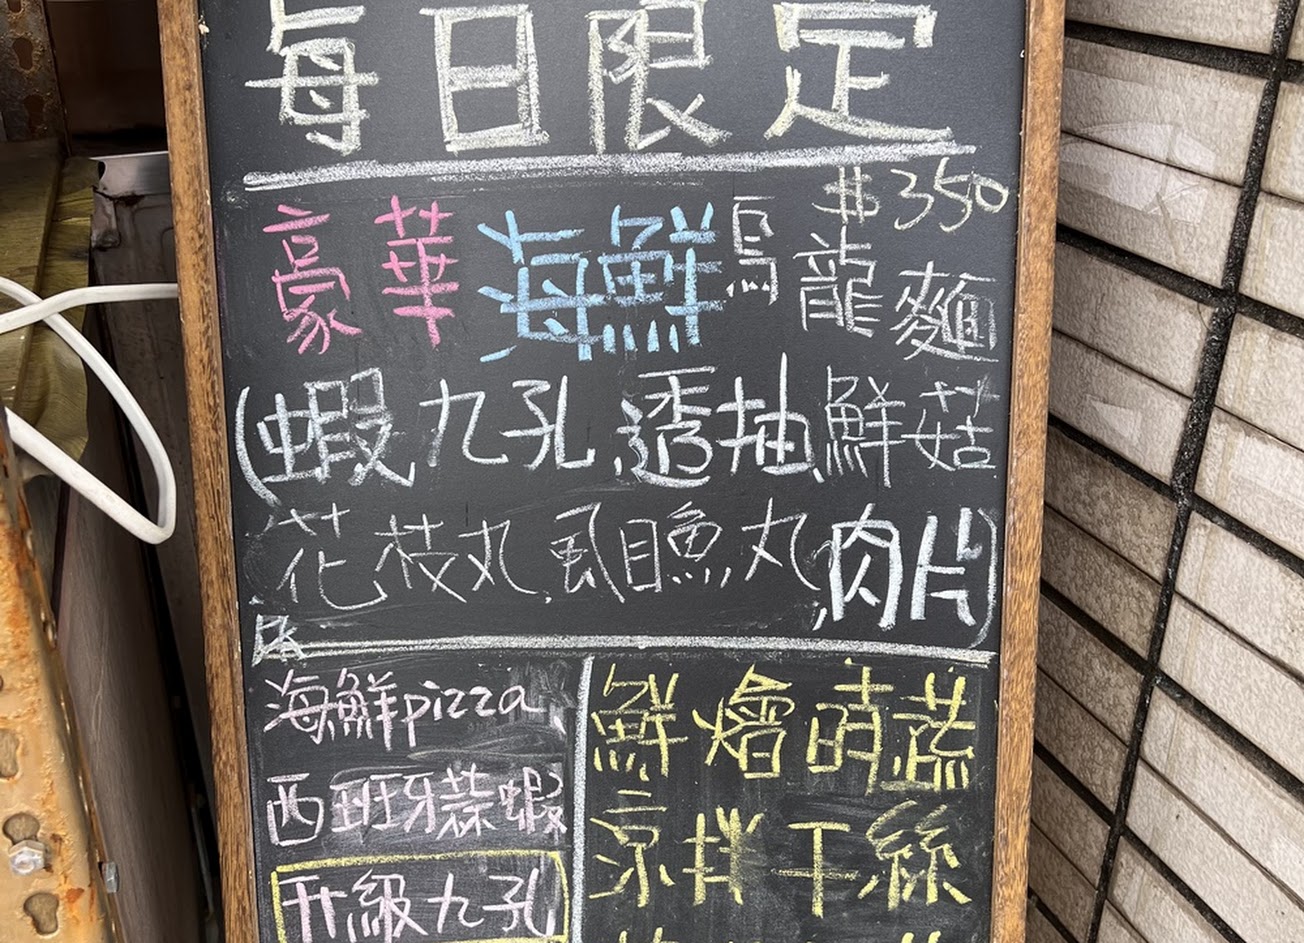 每日限定
$350
豪華海鮮烏龍麵
(蝦.九孔.透抽.鮮菇
花枝丸.虱目魚丸.肉片)
海鮮pizza
西班牙蒜蝦
升級九孔
鮮燴時蔬
涼拌干絲